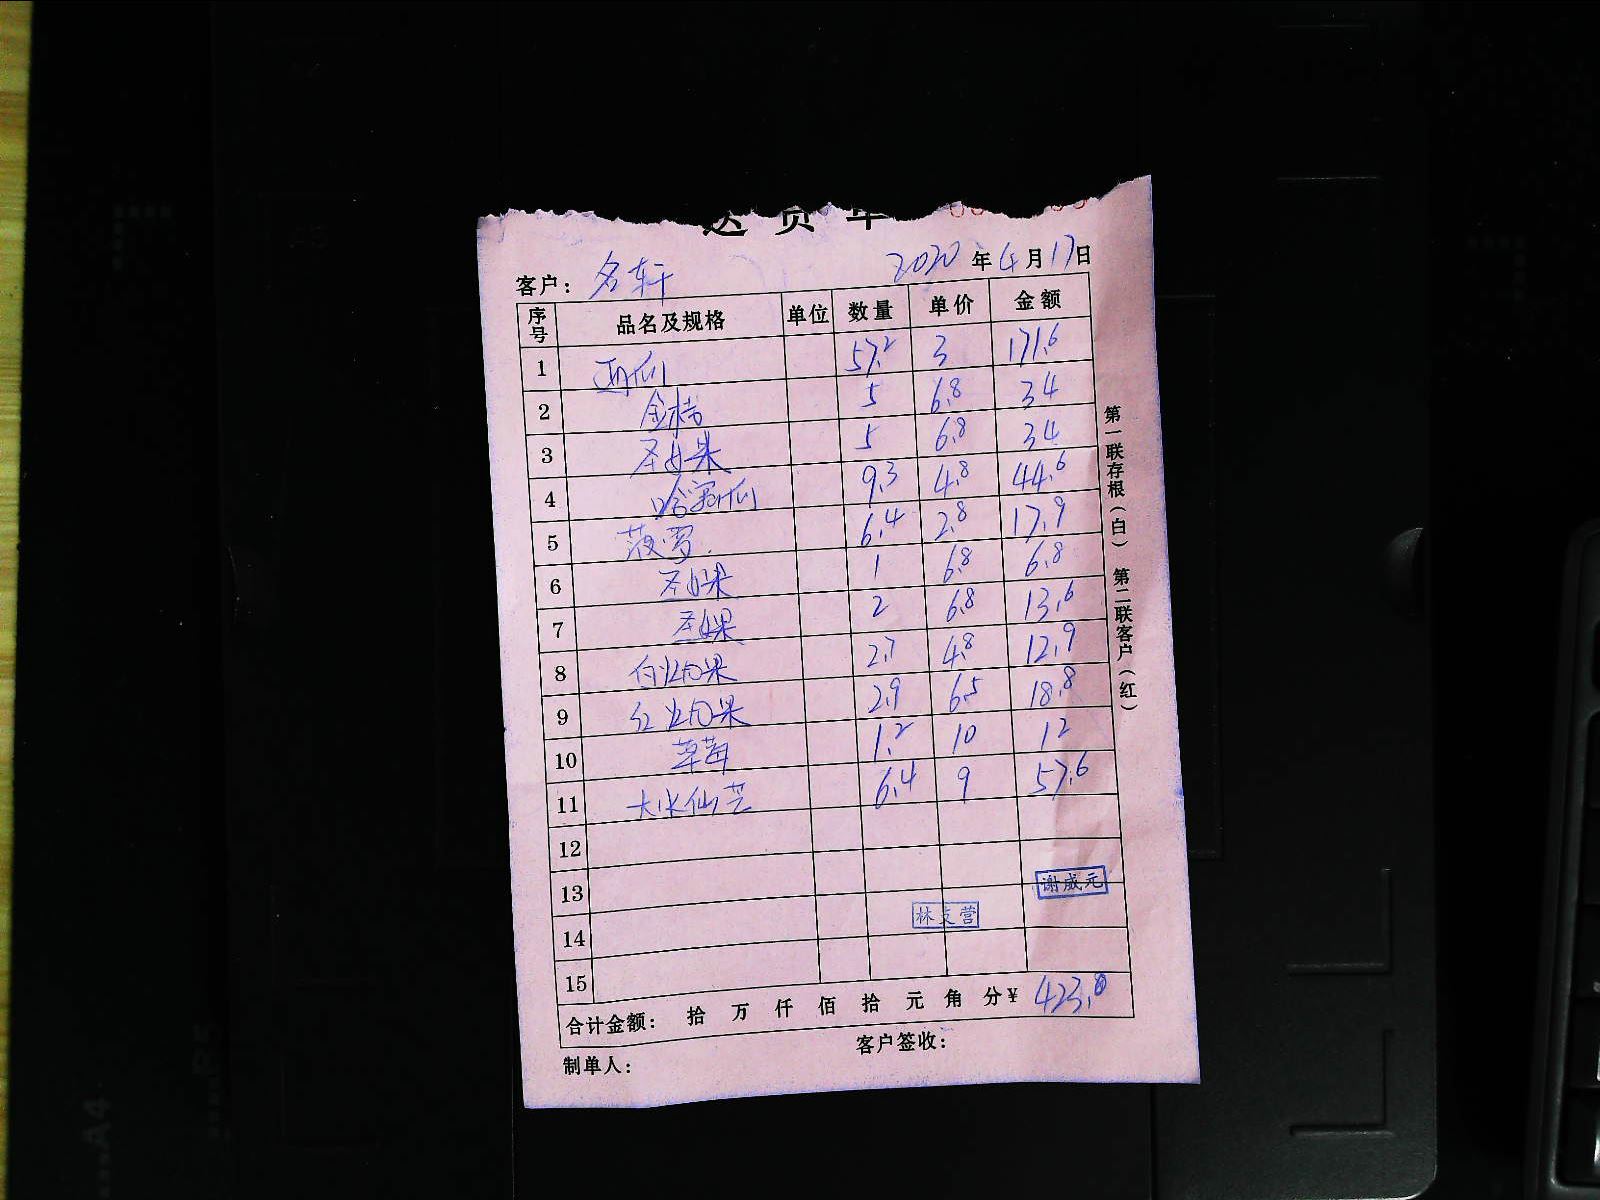 送货单
客户： 名轩 2020 年 4 月 17 日
序号 品名及规格 单位 数量 单价 金额
1 西瓜 57.2 3 171.6
2 金桔 5 6.8 34
3 圣女果 5 6.8 34
4 哈密瓜 9.3 4.8 44.6
5 菠萝. 6.4 2.8 17.9
6 圣女果 1 6.8 6.8
7 圣女果 2 6.8 13.6
8 白火龙果 2.7 4.8 12.9
9 红火龙果 2.9 6.5 18.8
10 草莓 1.2 10 12
11 大水仙芒 6.4 9 57.6
12
13 谢咸元
14 林支营
15
合计金额： 拾 万 仟 佰 拾 元 角 分 ¥ 423.8
制单人： 客户签收：
第一联存根（白） 第二联客户（红）
A4